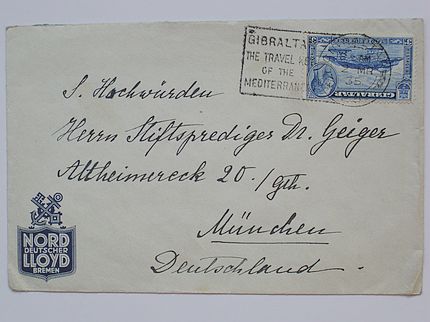 GIBRALTA
THE TRAVEL K
OF THE
MEDITERRAN
GIBRALTAR
S. Hochwürden
Herrn Stiftsprediger Dr. Geiger
Altheimereck 20./Gth.
München
Deutschland.
NORD
DEUTSCHER
LLOYD
BREMEN